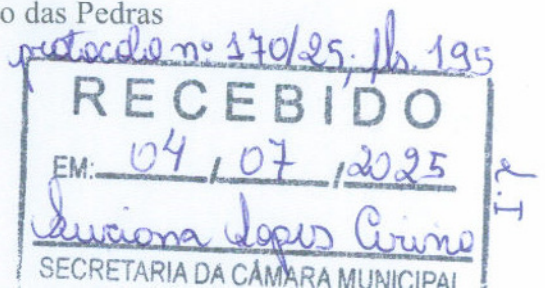 o das Pedras
protocolo nº 170/25, fls. 195
RECEBIDO
EM: 04 / 07 / 2025
Lopes Cirino
SECRETARIA DA CÂMARA MUNICIPAL